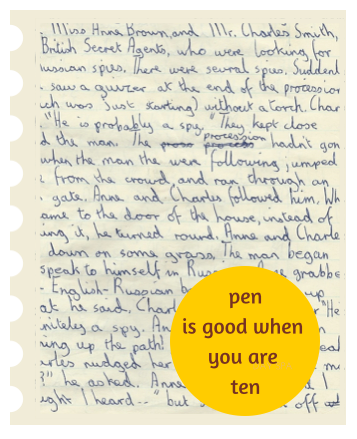 . Miss Anne Brown, and Mr. Charles Smith,
British Secret Agents, who were looking for
ussian spies. There were several spies. Suddenl
. saw a guizer at the end of the procession
uch was just starting) without a torch. Char
. "He is probably a spy." They kept close
d the man. The procession hadn't gon
when the man the were following jumped
i from the crowd, and ran through an
. gate. Anne and Charles followed him. Wh
ame to the door of the house, instead of
ing it, he turned round. Anne and Charle
down on some grass. The man began
speak to himself in Russ grabbe
- English-Russian b up
at he said. Charl "He
nitely a spy. An
ing up the path! eal
arles nudged her m
?" he asked. Anne I
ight I heard--" but s off at
pen
is good when
you are
ten